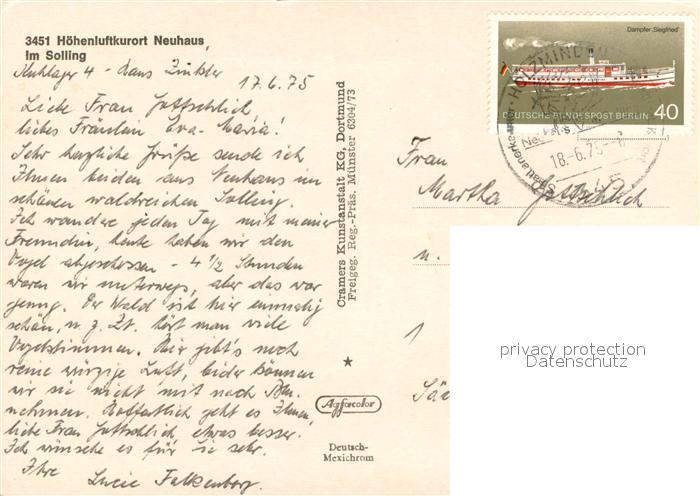 3451 Höhenluftkurort Neuhaus
im Solling
4 - Haus 17.6.75
Liebe Frau Gottschlich
liebes Fräulein Eva-Maria!
Sehr herzliche Grüße sende ich
Ihnen beiden aus Neuhaus im
schönen waldreichen Solling.
Ich wandere jeden Tag mit meiner
Freundin, heute haben wir den
Vogel abgeschossen - 4 1/2 Stunden
waren wir unterwegs, aber das war
genug. Der Wald ist hier einmalig
schön, u. z. Zt. hört man viele
Vogelstimmen. Hier gibt's noch
reine würzige Luft, leider können
wir sie nicht mit nach Bln.
nehmen. Hoffentlich geht es Ihnen,
liebe Frau Gottschlich, etwas besser.
Ich wünsche es für Sie sehr.
Ihre
Lucie Falkenberg.
Cramers Kunstanstalt KG, Dortmund
Freigeg. Reg.-Präs. Münster 6304/73
Agfacolor
Deutsch-
Mexichrom
Dampfer „Siegfried"
DEUTSCHE BUNDESPOST BERLIN 40
HOLZMINDEN
18.-6.75
Frau
Martha Gottschlich
u.
1
privacy protection
Datenschutz